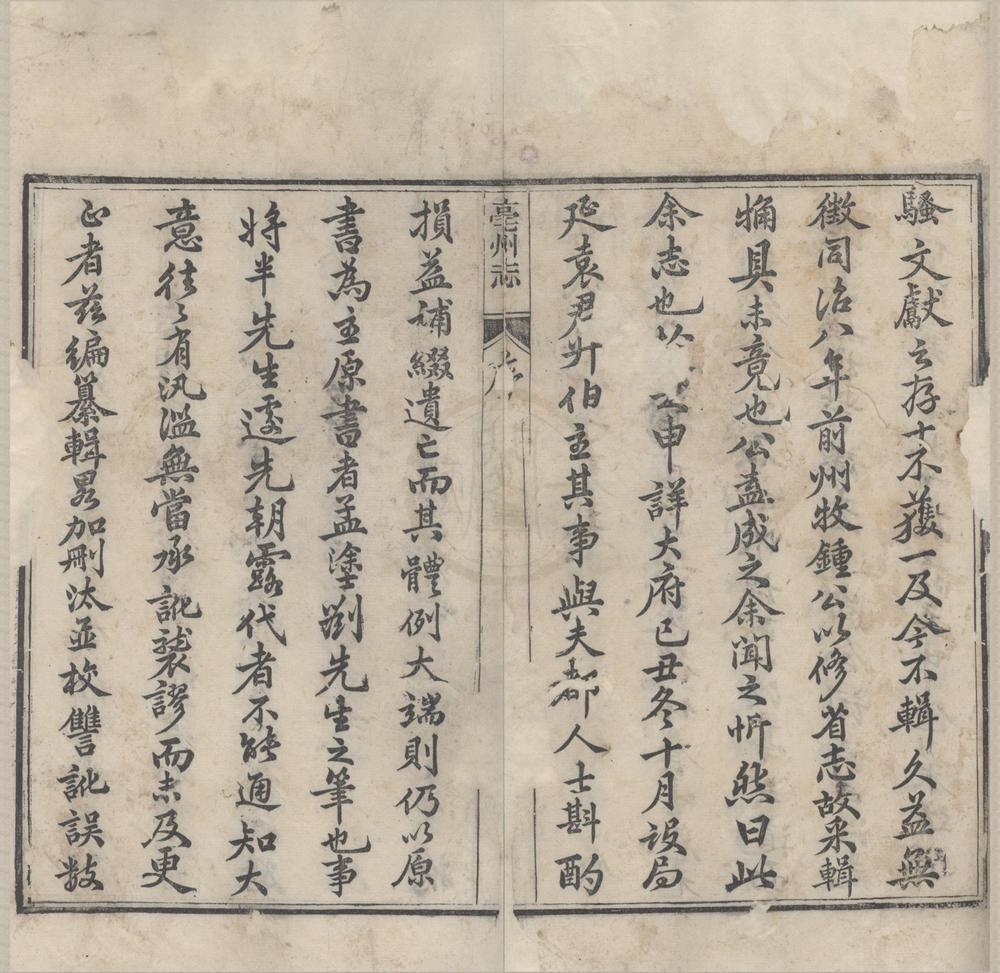 騷文獻之存十不獲一及今不輯久益無
徵同治八年前州牧鍾公以修省志故采輯
觕具未竟也公蓋成之余聞之忻然曰此
余志也以 申詳大府己丑冬十月設局
延袁尹升伯主其事與夫都人士斟酌
亳州志
序
損益補綴遺亡而其體例大端則仍以原
書為主原書者孟塗劉先生之筆也事
將半先生遽先朝露代者不能通知大
意往〻有汎濫無當承訛襲謬而未及更
正者茲編纂輯畧加刪汰並校讐訛誤數